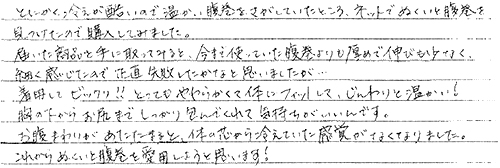 とにかく、冷えが酷いので温かい腹巻をさがしていたところ、ネットでぬくいと腹巻を
見つけたので購入してみました。
届いた商品を手に取ってみると、今まで使っていた腹巻よりも厚めで伸びも少なく、
細く感じたので正直失敗したかなと思いましたが…
着用して ビックリ!! とってもやわらかくて体にフィットして、じんわりと温かい!
胸の下からお尻まで しっかり包んでくれて 気持ちがいいんです。
お腹まわりが あたたまると、体の芯から冷えていた感覚がなくなりました。
これからもぬくいと腹巻を愛用しようと思います!